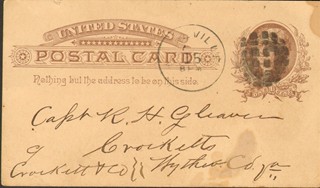 UNITED STATES
POSTAL CARD
Nothing but the address to be on this side.
15
Capt R. H. Gleaves
Crocketts
Crockett & Co Wythe Co Va